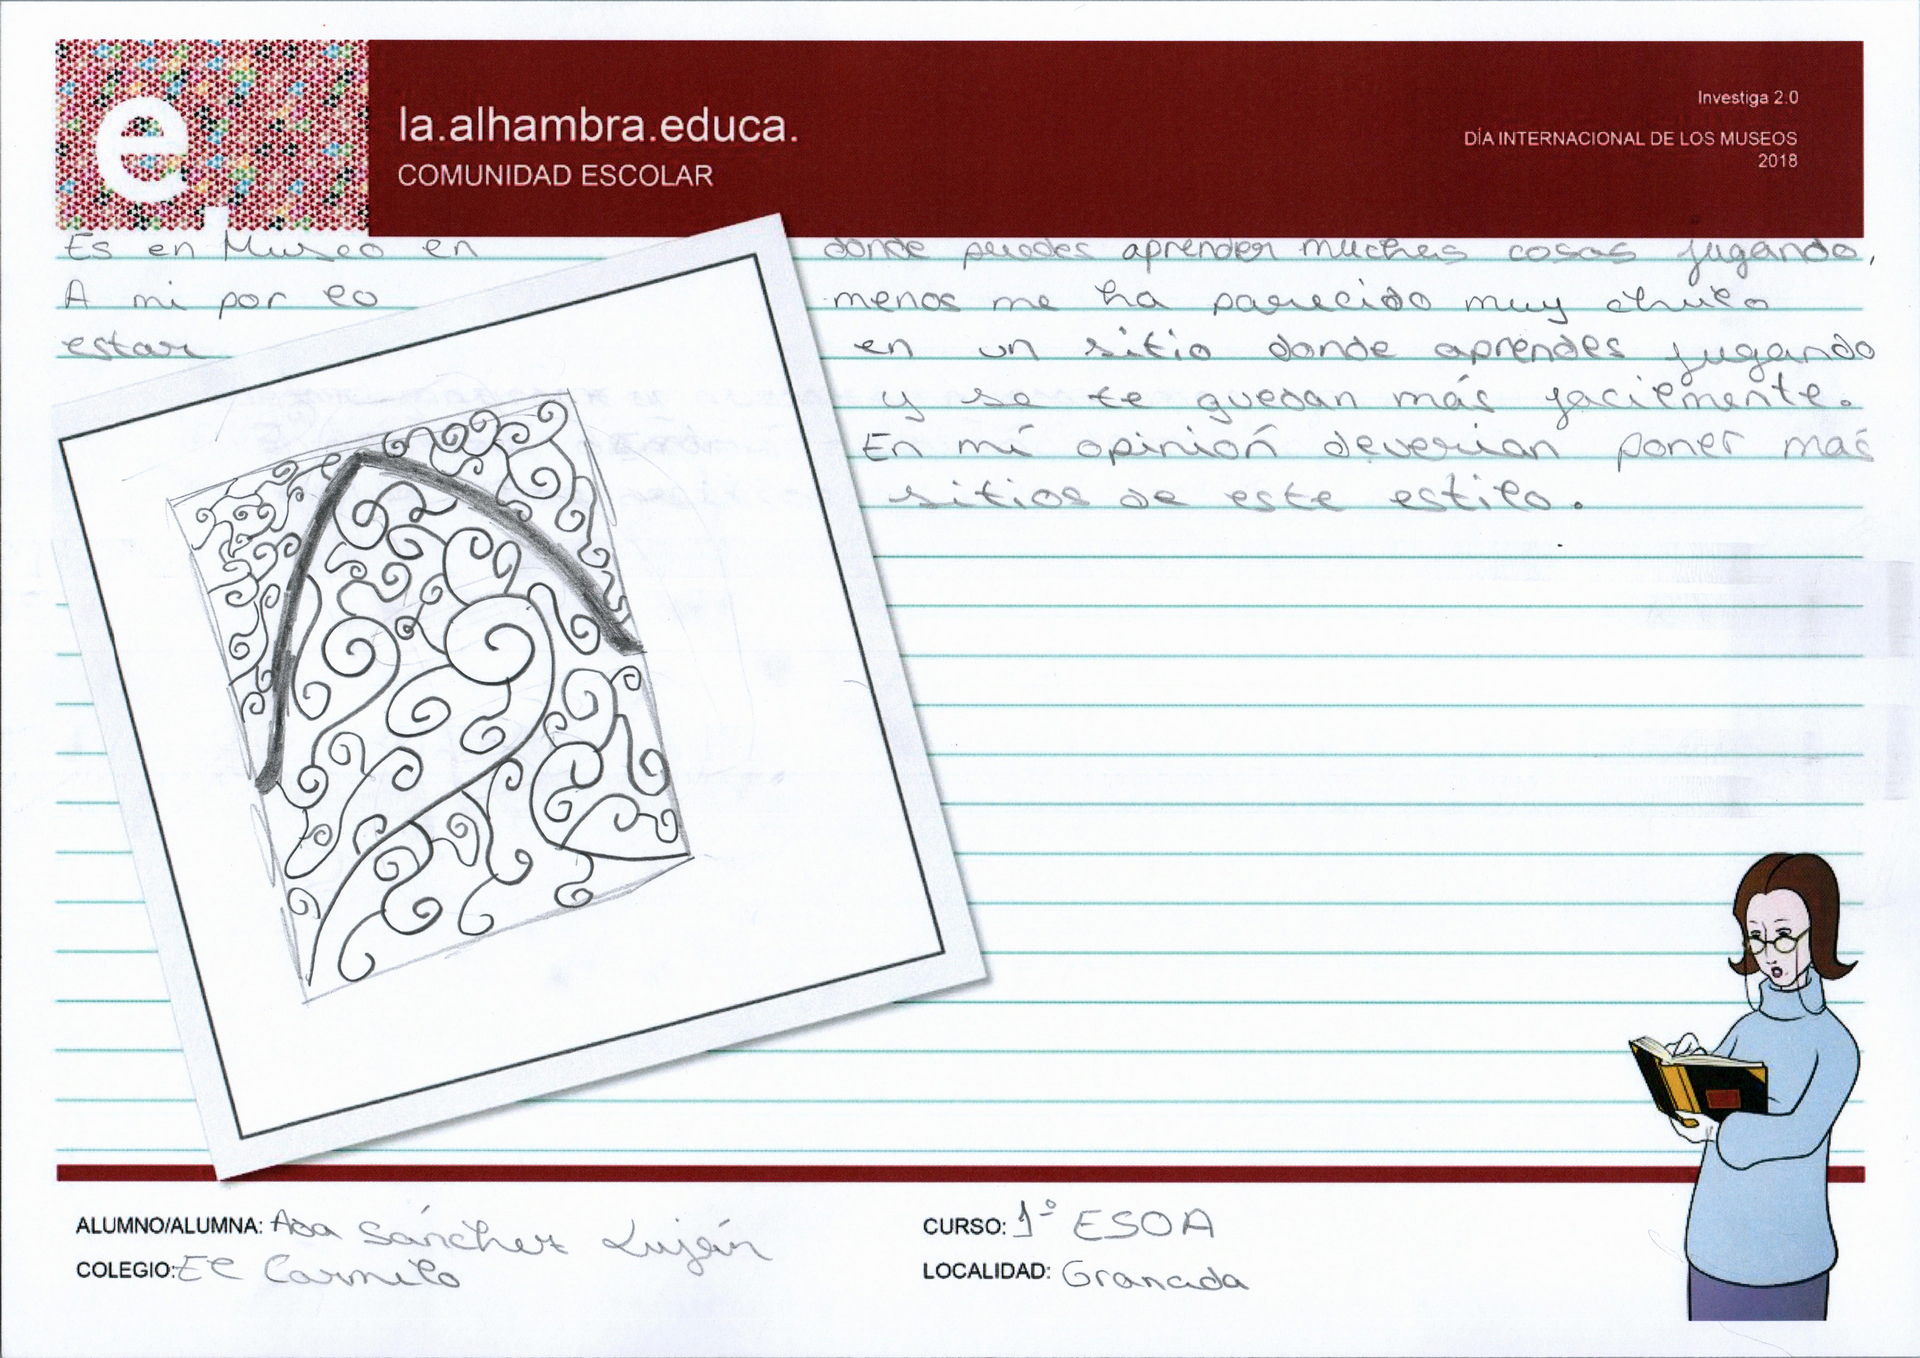 e,
la.alhambra.educa.
COMUNIDAD ESCOLAR
Investiga 2.0
DÍA INTERNACIONAL DE LOS MUSEOS
2018
Es en Museo en donde puedes aprender muchas cosas jugando,
A mi por lo menos me ha parecido muy chulo
estar en un sitio donde aprendes jugando
y se te quedan más facilmente.
En mí opinión deverian poner más
sitios de este estilo.
ALUMNO/ALUMNA: Ada Sánchez Luján
CURSO: 1º ESOA
COLEGIO: El Carmelo
LOCALIDAD: Granada